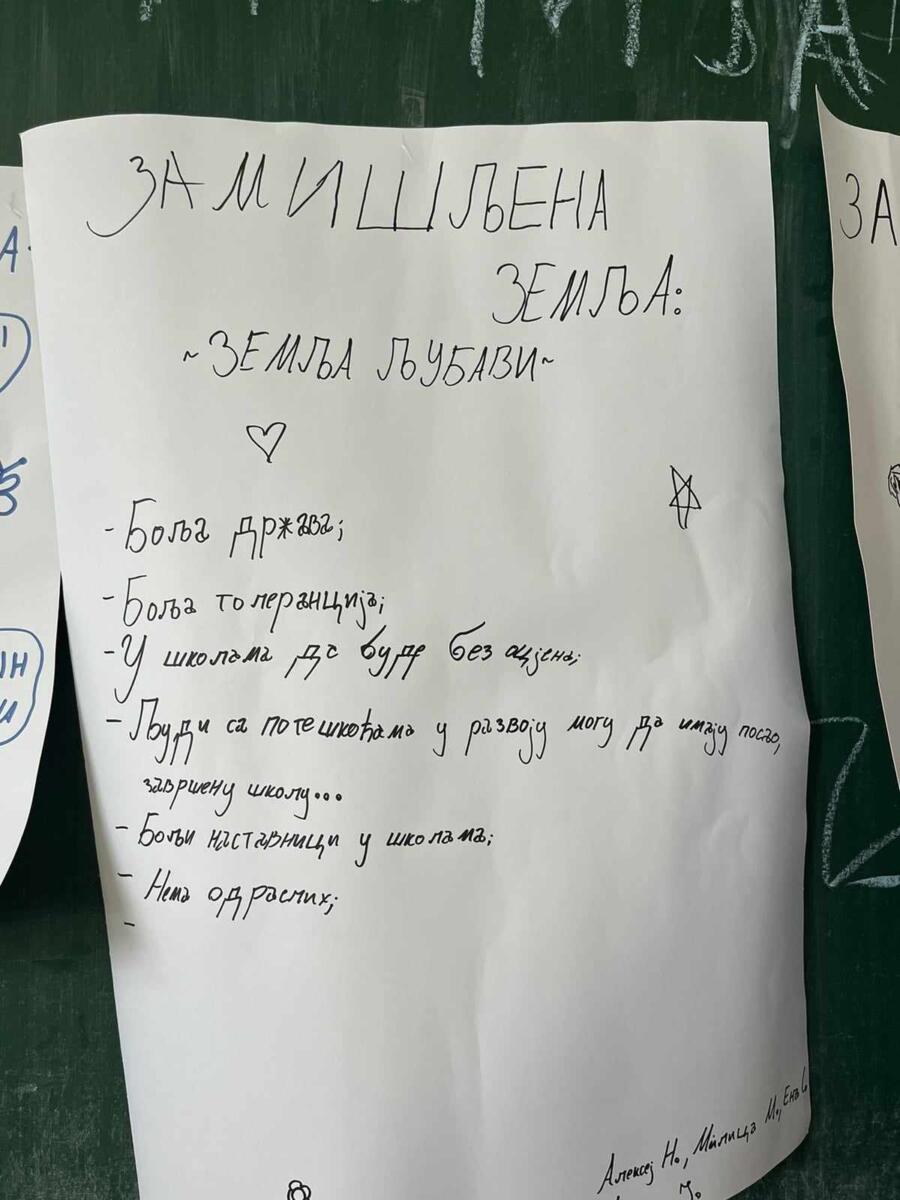 ЗАМИШЉЕНА
ЗЕМЉА:
~ЗЕМЉА ЉУБАВИ~
- Боља држава;
- Боља толеранција;
- У школама да буде без оцјена;
- Људи са потешкоћама у развоју могу да имају посао,
завршену школу...
- Бољи наставници у школама;
- Нема одраслих;
-
Алексеј Н., Милица М., Ена С.
ЗА